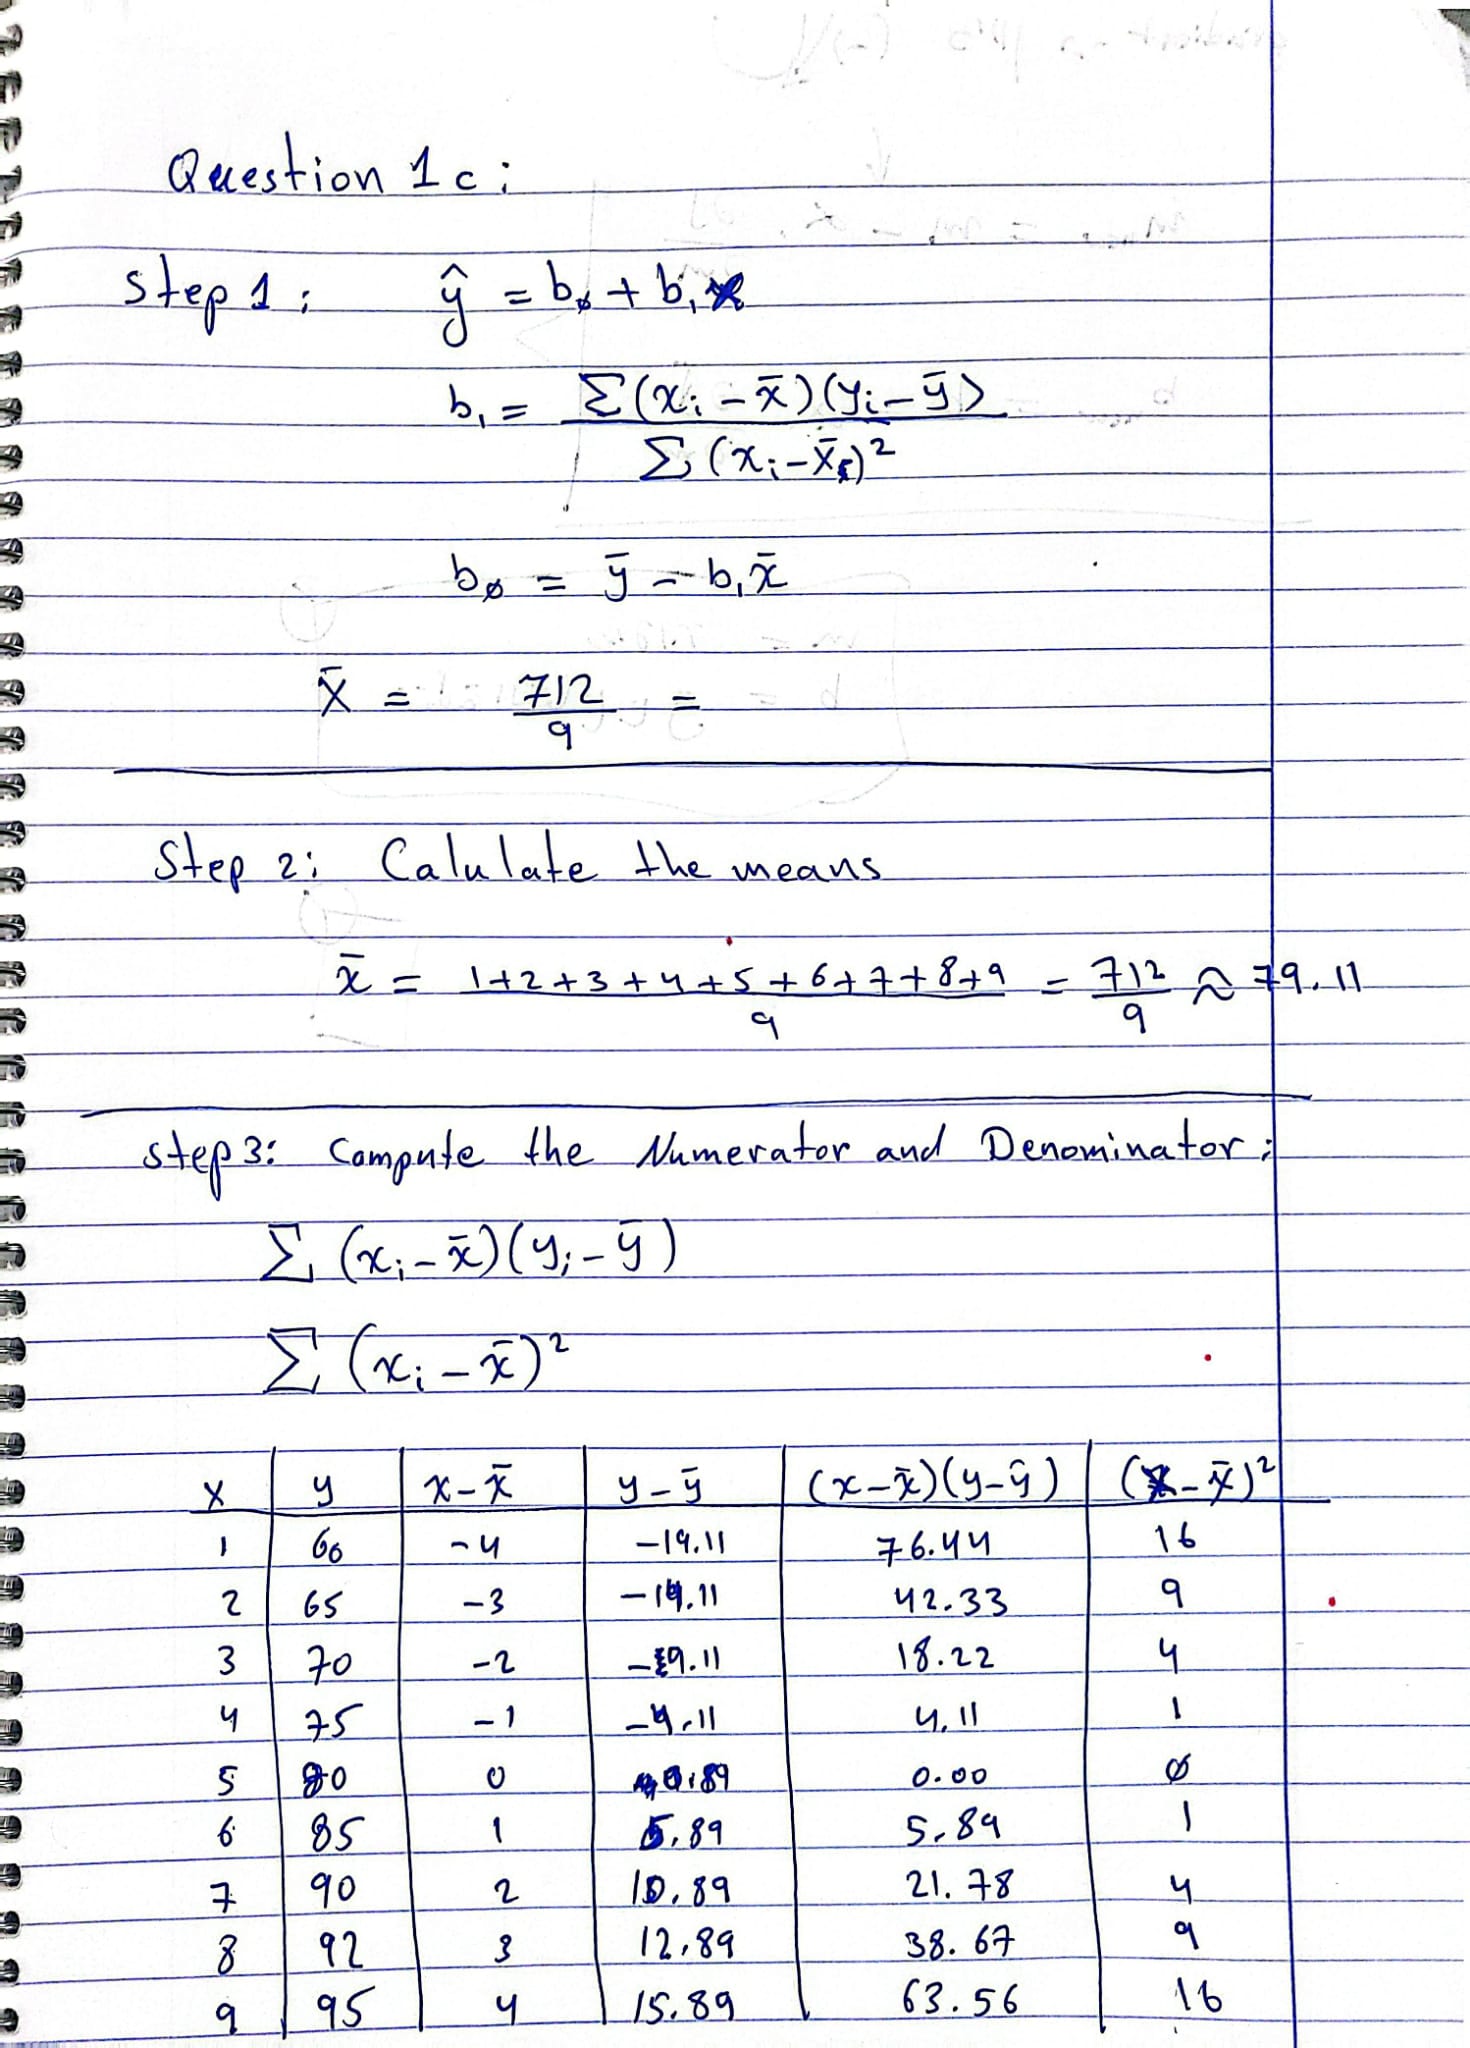 Question 1c:
Step 1: ŷ = b₀ + b₁x
b₁ = Σ(xᵢ - x̄)(yᵢ - ȳ) / Σ(xᵢ - x̄)²
b₀ = ȳ - b₁x̄
x̄ = 712/9 =
Step 2: Calulate the means
x̄ = (1+2+3+4+5+6+7+8+9)/9 = 712/9 ≈ 79.11
Step 3: Compute the Numerator and Denominator:
Σ(xᵢ - x̄)(yᵢ - ȳ)
Σ(xᵢ - x̄)²
x | y | x-x̄ | y-ȳ | (x-x̄)(y-ȳ) | (x-x̄)²
1 | 60 | -4 | -19.11 | 76.44 | 16
2 | 65 | -3 | -14.11 | 42.33 | 9
3 | 70 | -2 | -9.11 | 18.22 | 4
4 | 75 | -1 | -4.11 | 4.11 | 1
5 | 80 | 0 | 0.89 | 0.00 | 0
6 | 85 | 1 | 5.89 | 5.89 | 1
7 | 90 | 2 | 10.89 | 21.78 | 4
8 | 92 | 3 | 12.89 | 38.67 | 9
9 | 95 | 4 | 15.89 | 63.56 | 16